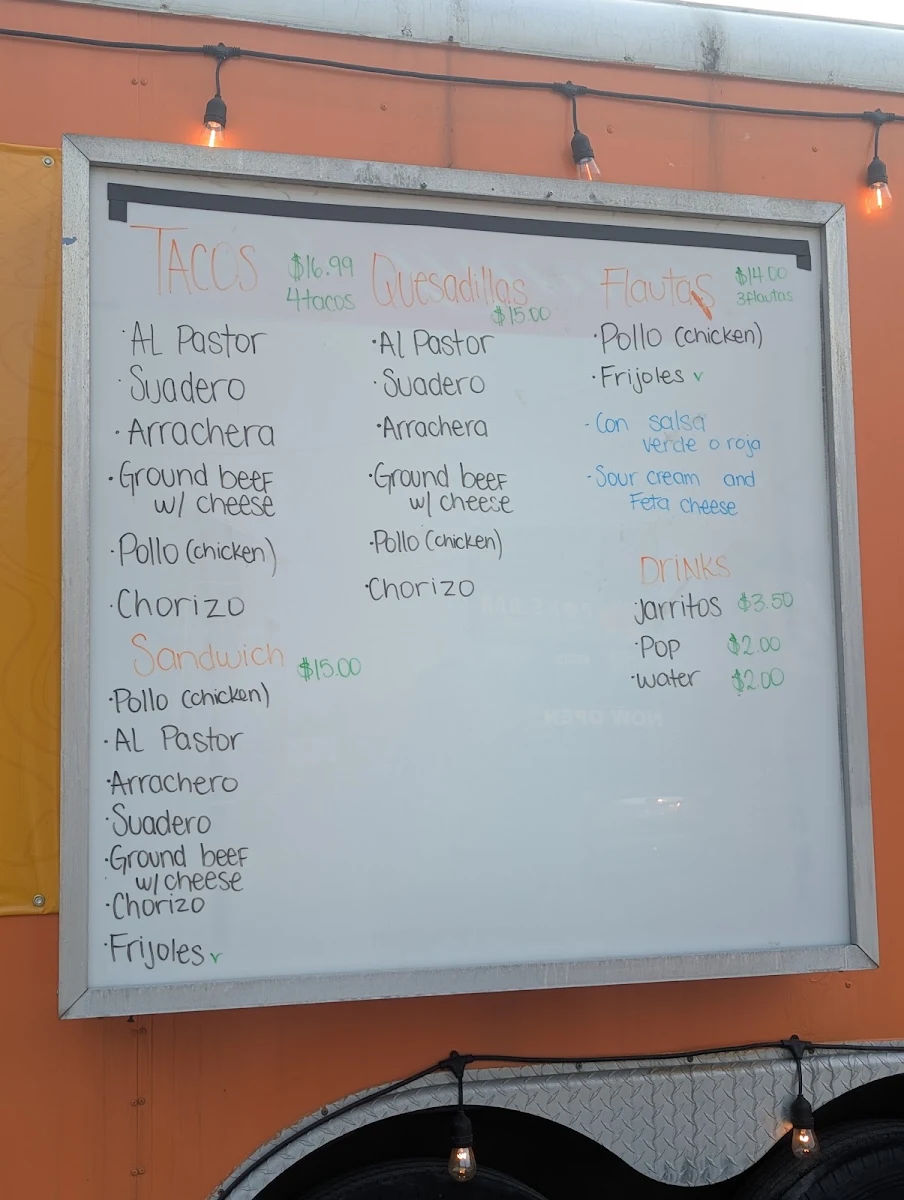 TACOS $16.99
4tacos
·AL Pastor
·Suadero
·Arrachera
·Ground beef
w/ cheese
·Pollo (chicken)
·Chorizo
Sandwich $15.00
·Pollo (chicken)
·AL Pastor
·Arrachero
·Suadero
·Ground beef
w/ cheese
·Chorizo
·Frijoles v
Quesadillas
$15.00
·Al Pastor
·Suadero
·Arrachera
·Ground beef
w/ cheese
·Pollo (chicken)
·Chorizo
Flautas $14.00
3flautas
·Pollo (chicken)
·Frijoles v
-Con salsa
verde o roja
-Sour cream and
Feta cheese
Drinks
Jarritos $3.50
·Pop $2.00
·water $2.00
NOW OPEN